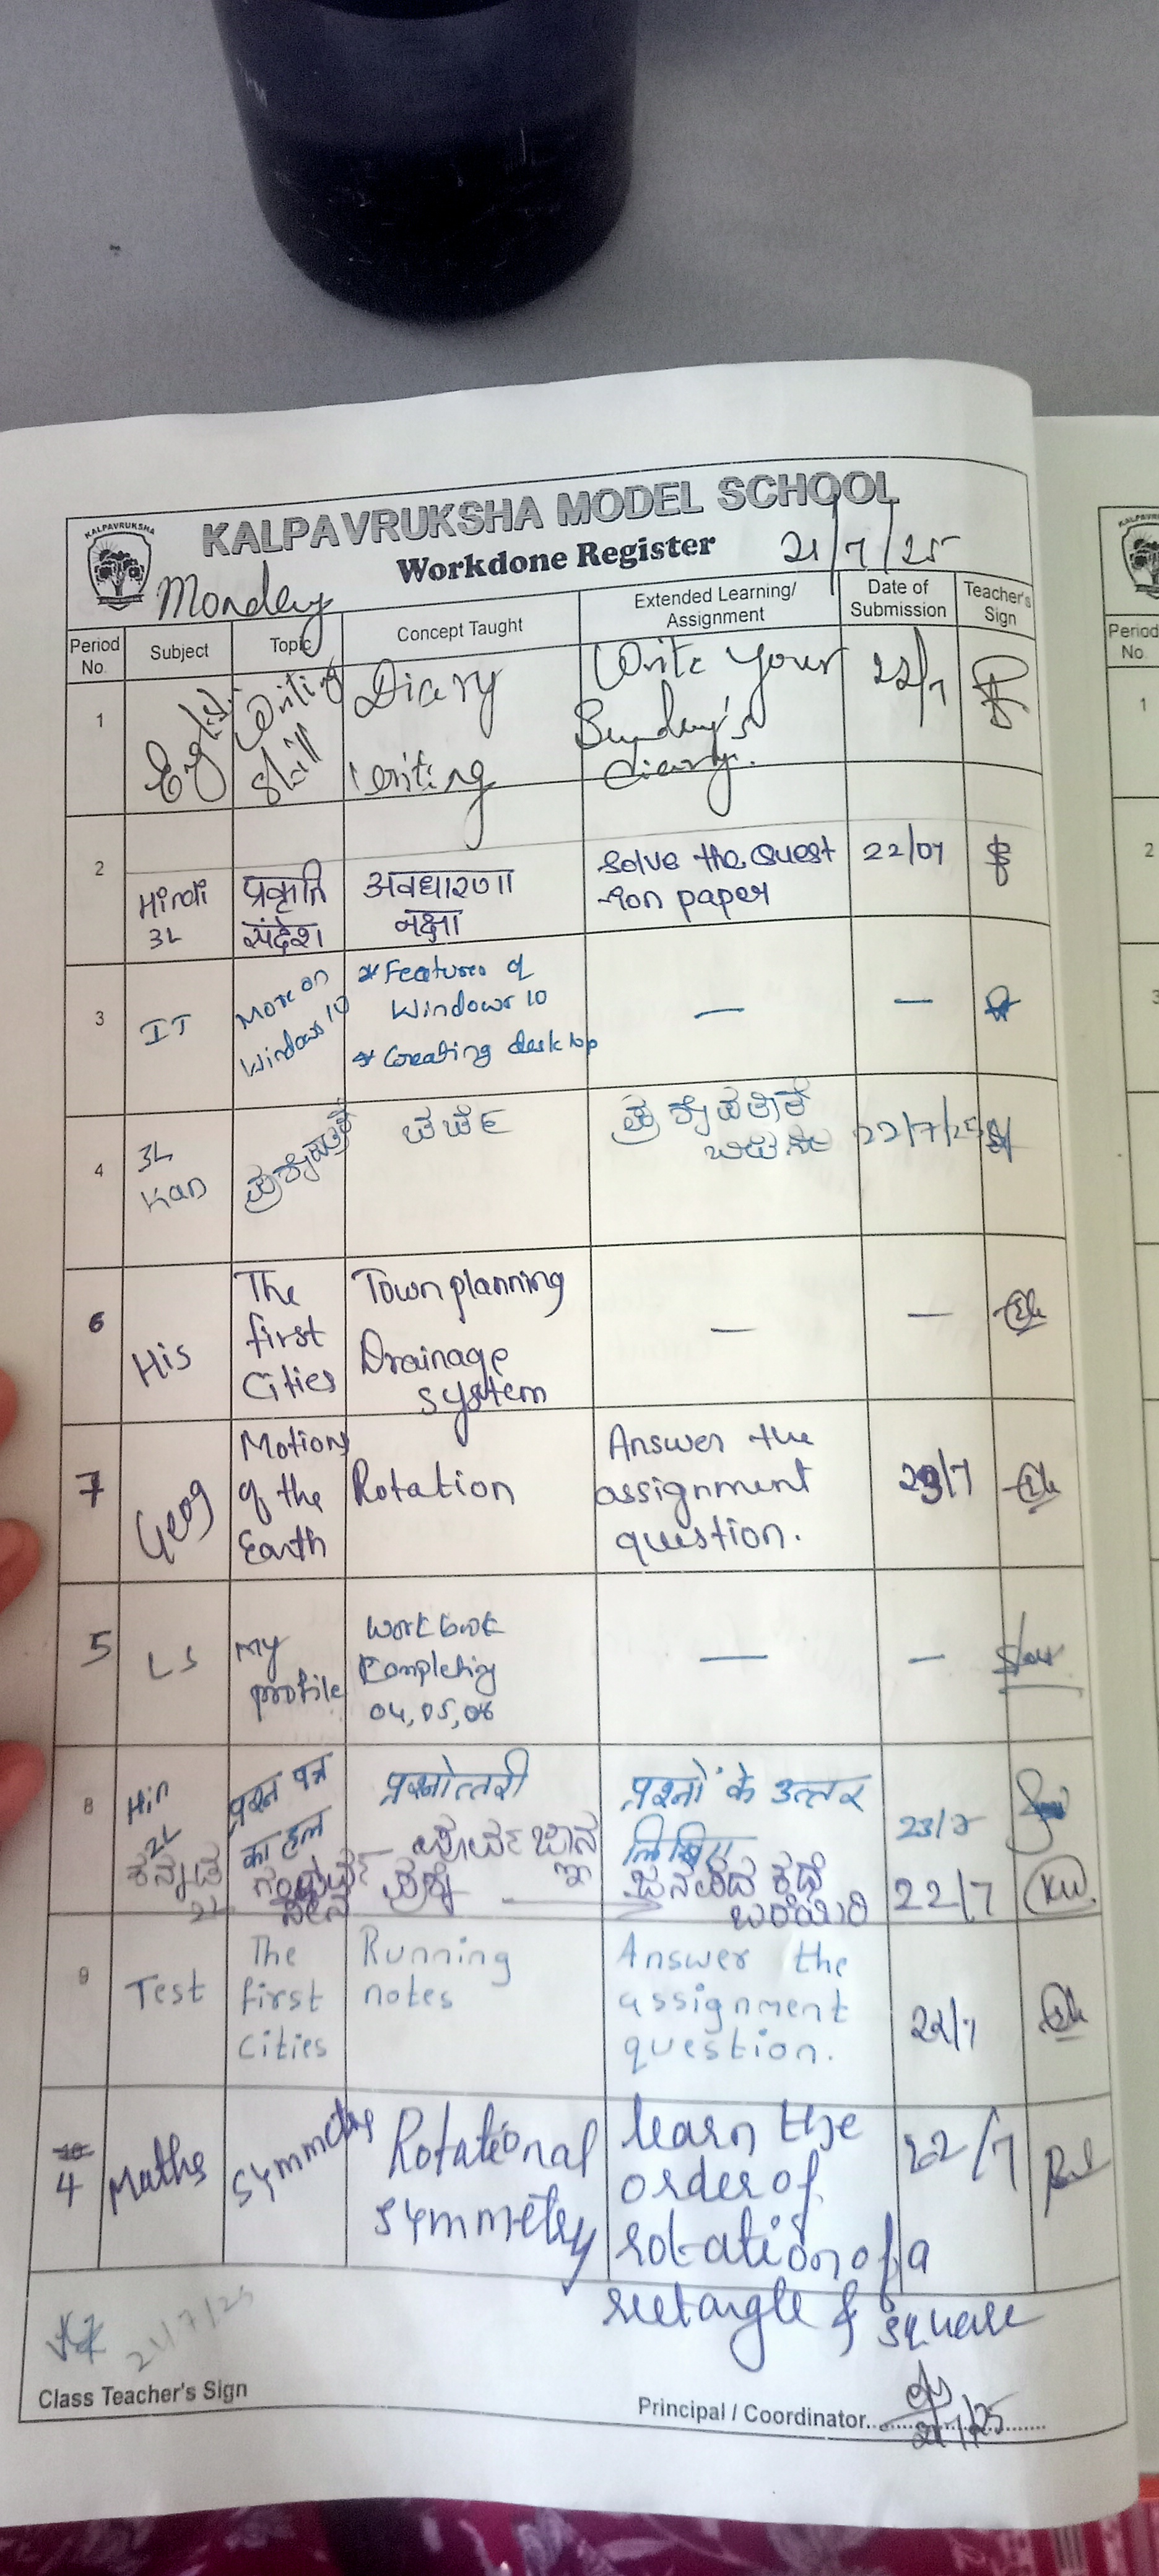 KALPAVRUKSHA
KALPAVRUKSHA MODEL SCHOOL
Workdone Register 21/7/25
Monday
Period No. Subject Topic Concept Taught Extended Learning/ Assignment Date of Submission Teacher's Sign
1 English Writing Skill Diary Writing Write your Sunday's diary. 22/7
2 Hindi 3L प्रकृति संदेश अवधारणा नक्षा Solve the Quest -ion paper 22/07
3 IT More on Windows 10 * Features of Windows 10 * Creating desktop — —
4 3L Kan ಪ್ರಶ್ನೆಪತ್ರಿಕೆ ಚರ್ಚೆ ಪ್ರಶ್ನೆಪತ್ರಿಕೆ 22/7/25
6 His The first Cities Town planning Drainage system — —
7 Geog Motions of the Earth Rotation Answer the assignment question. 23/7
5 LS My profile Work book Completing 04, 05, 06 — —
8 Hin 2L प्रश्न पत्र का हल प्रश्नोत्तरी प्रश्नों के उत्तर लिखिए 23/7
ಕನ್ನಡ 2L ಜನಪದ ಕಥೆ ಬರೆಯಿರಿ 22/7
9 Test The first Cities Running notes Answer the assignment question. 22/7
4 Maths Symmetry Rotational symmetry learn the order of rotation of a rectangle & square 22/7
21/7/25
Class Teacher's Sign
Principal / Coordinator
21/7/25
Period No.
1
2
3